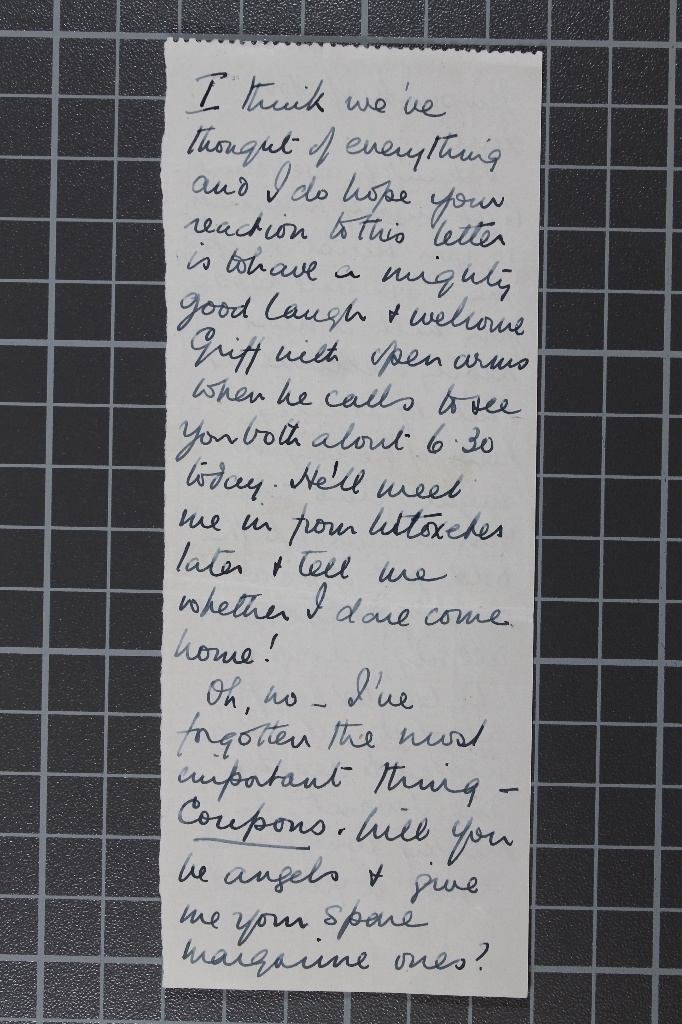 I think we've
thought of everything
and I do hope your
reaction to this letter
is to have a mighty
good laugh & welcome
Griff with open arms
when he calls to see
you both about 6.30
today. He'll meet
me in from
later & tell me
whether I dare come
home!
Oh, no – I've
forgotten the most
important thing –
Coupons. Will you
be angels & give
me your spare
margarine ones?